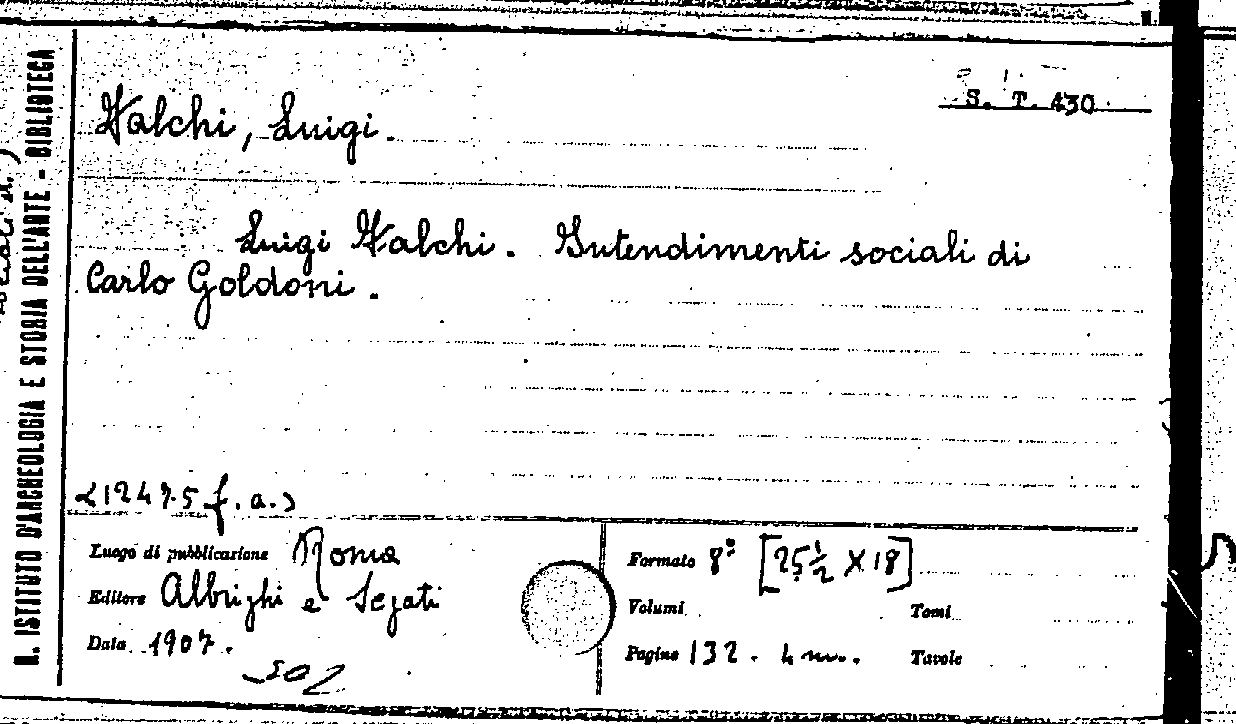 S. T. 430
Falchi, Luigi.
Luigi Falchi. Intendimenti sociali di
Carlo Goldoni.
(12475 f. a.)
Luogo di pubblicazione Roma
Editore Albrighi e Segati
Data 1907.
502
Formato 8° [25½ X 18]
Volumi Tomi
Pagine 132. 4 nn. Tavole
R. ISTITUTO D'ARCHEOLOGIA E STORIA DELL'ARTE - BIBLIOTECA